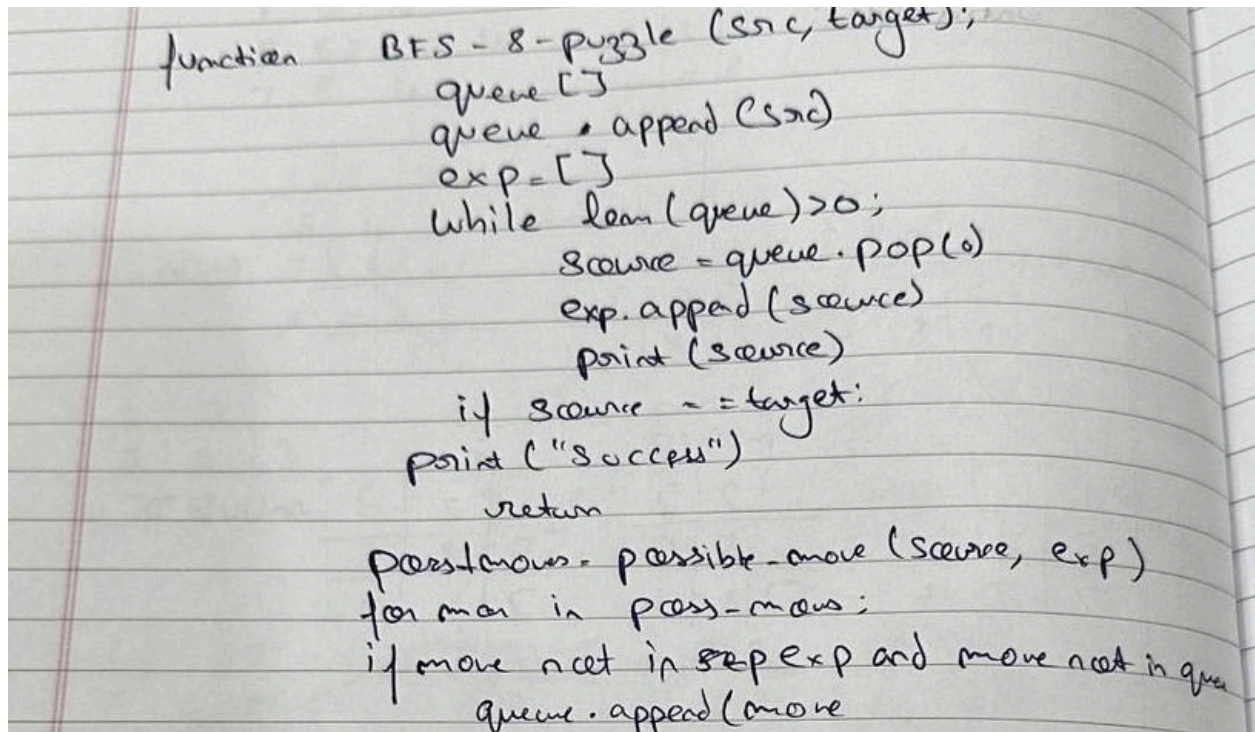 function BFS - 8 - puzzle (src, target);
queue []
queue . append (src)
exp = []
while len (queue) > 0 ;
source = queue . pop (0)
exp. append (source)
print (source)
if source == target:
print ("Success")
return
poss-moves = possible-move (source, exp)
for move in poss-moves ;
if move not in exp and move not in que
queue . append (move